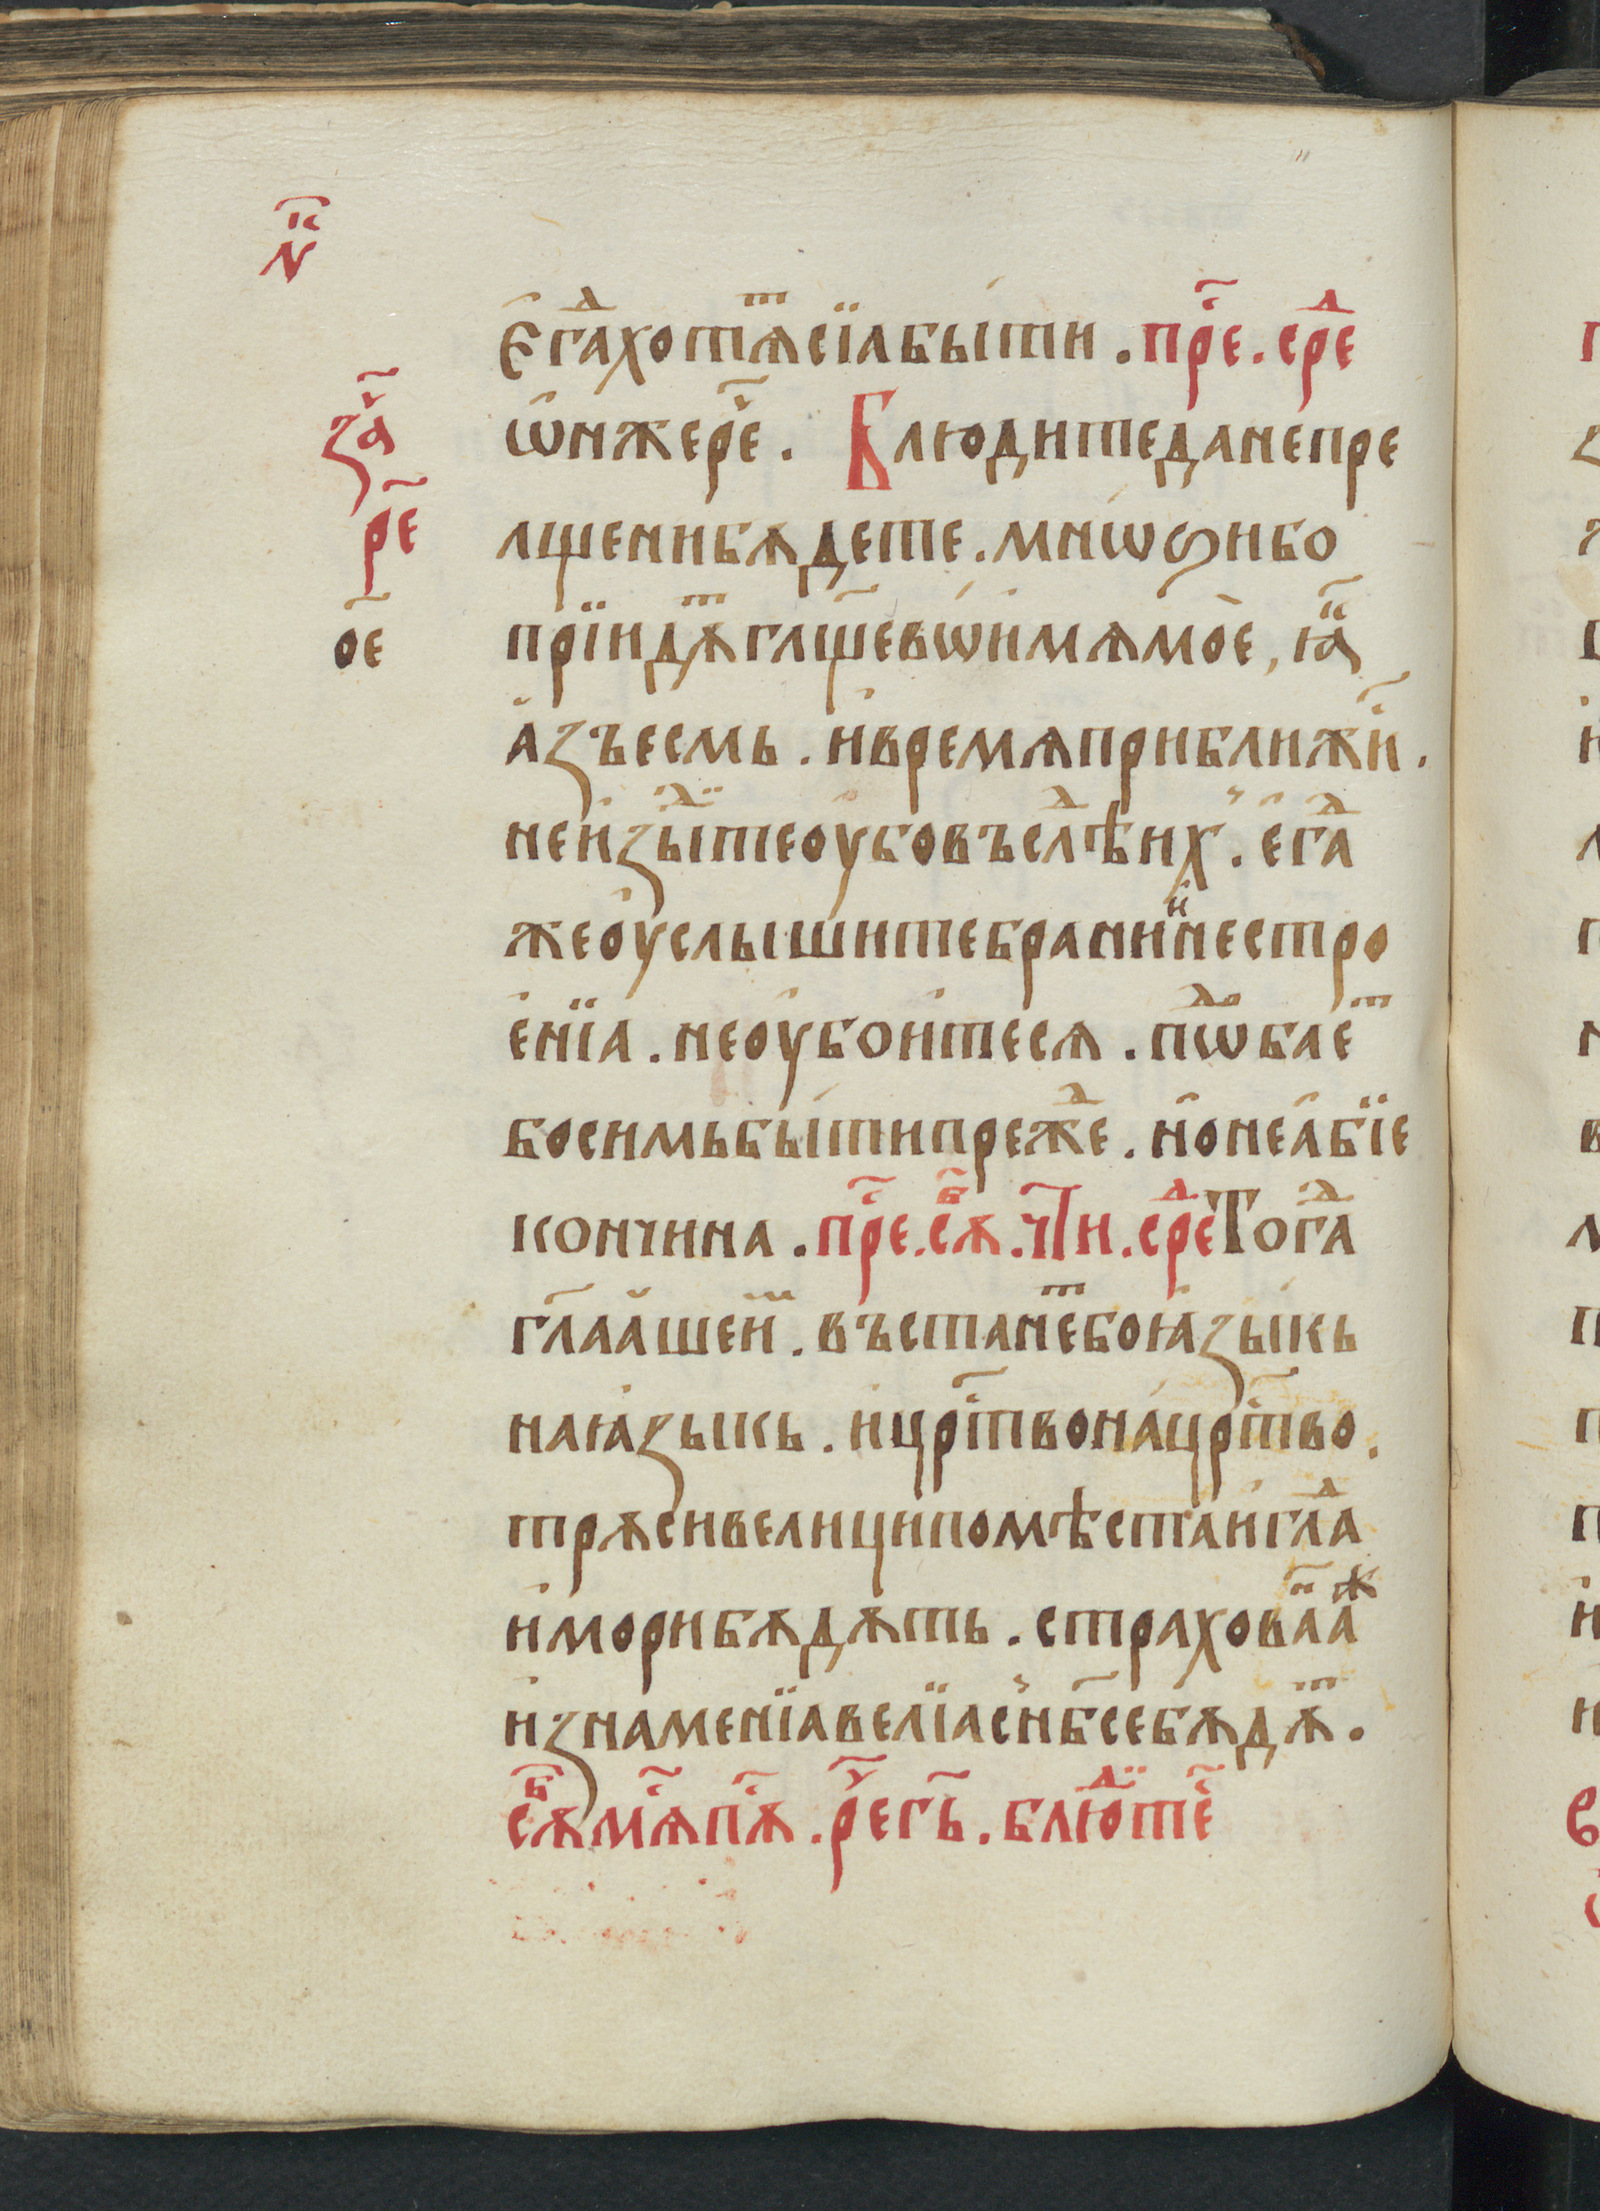 к҃
н
Єгⷣахотѧⷮсїабыти . прⷭ҇е . срⷣе
за҃ч
ѡ҆нжереч҃ . Блюдитеданепре
ре҃
лщенибѫдете . мнѡѕибо
ое҃
прїидѫⷮглщ҃евѡ҆имѧмое , ꙗ҃к
а҆зъесмь . и҆времѧприближи҆с҃ .
неизыдⷣитеоубовъслѣⷣих . е҆гⷣа
жеоуслышитебранииⷩ҇нестро
е҆нїа . неоубоитесѧ . пⷣѡбаеⷮ
босимьбытипрежⷣе . н҆онеа҆бїе
кончина . прⷭ҇е . сⷡ҇ѧ . ч҃ти . срⷣеТогⷣа
гл҃аашеи҆м . въстанеⷮбоꙗзыкь
наꙗзыкь . и҆црⷭ҇твонацрⷭ҇тво .
трѫсивелиципомѣстаⷨигла҆ⷣ
и҆морибѫдѫть . страхованⷩ҇аⷤ
и҆знаменїавелїасн҃бсебѫдѫⷮ .
сⷡ҇ѫмⷭ҇ѧпⷭ҇ѧ . рч҃егь҃ . блюⷣтеⷭ҇